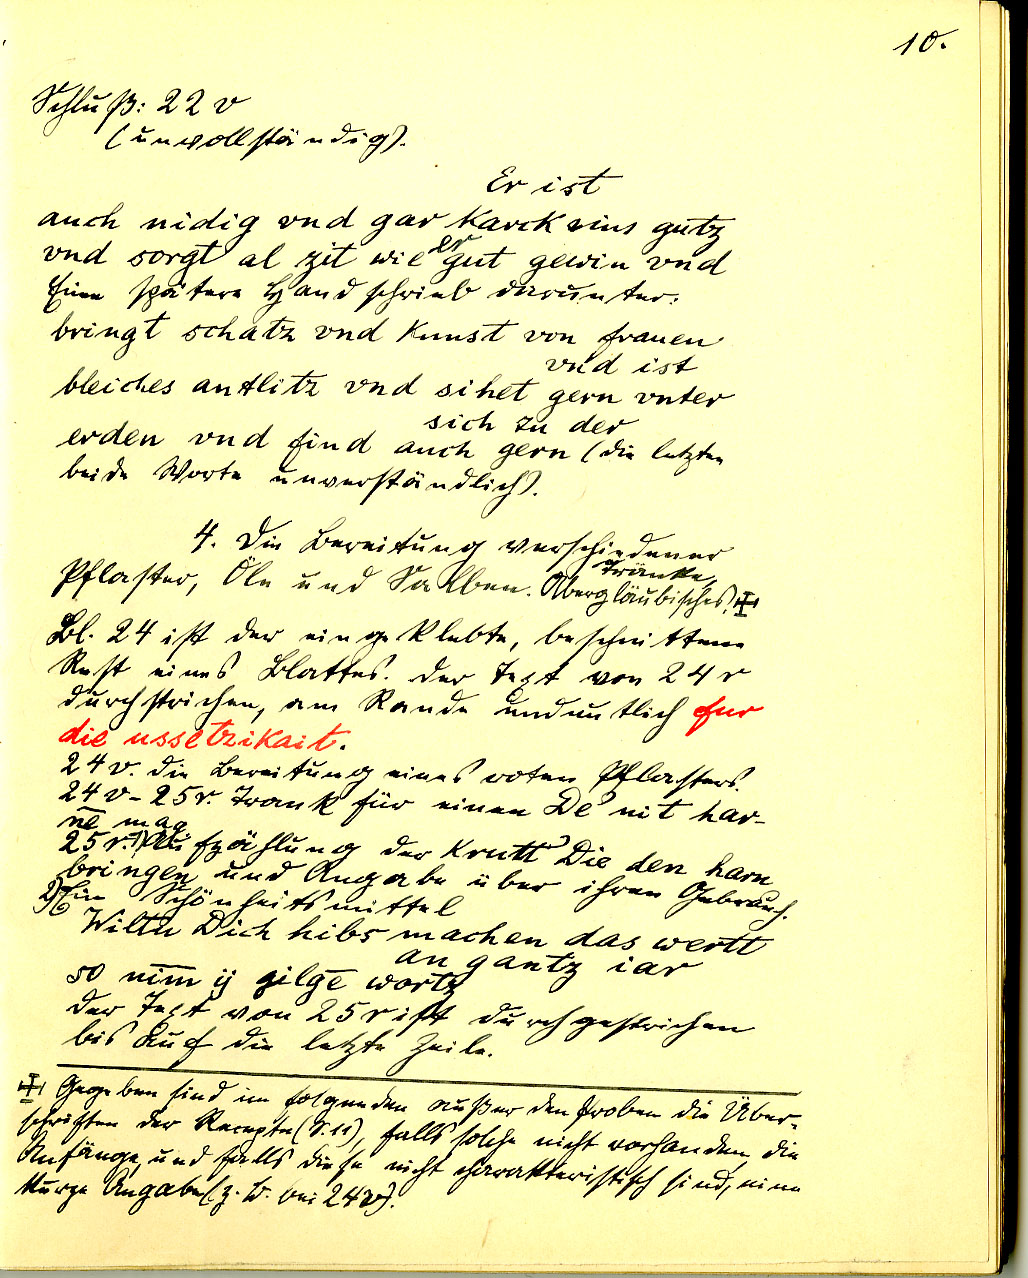 10.
Schluß: 22 v
(unvollständig).
Er ist
auch nidig vnd gar karck sins gutz
vnd sorgt al zit wie er gut gewin vnd
Eine spätere Hand schrieb darunter:
bringt schatz vnd kunst von frauen
vnd ist
bleiches antlitz vnd sihet gern vnter
sich zu der
erden vnd find auch gern (die letzten
beide Worte unverständlich).
4. Die Bereitung verschiedener
Tränke,
Pflaster, Öle und Salben. Abergläubisches.
Bl. 24 ist der eingeklebte, beschnittene
Rest eines Blattes. Der Text von 24 r
durchstrichen, am Rande undeutlich fur
die ussetzikait.
24 v. die Bereitung eines roten Pflasters.
24 v - 25 r. Trank für einen De nit har-
nē mag
25 r. 1) Aufzählung der Krutt Die den harn
bringen und Angabe über ihren Gebrauch.
2) Ein Schönheitsmittel
Wiltu Dich hibs machen das wertt
an gantz iar
so nim̄ ij gilgē wortz
der Text von 25 r ist durchgestrichen
bis auf die letzte Zeile.
Gegeben sind im folgenden außer den Proben die Über-
schriften der Recepte (S. 11), falls solche nicht vorhanden, die
Anfänge, und falls diese nicht charakteristisch sind, eine
kurze Angabe (z. B. bei 24v).